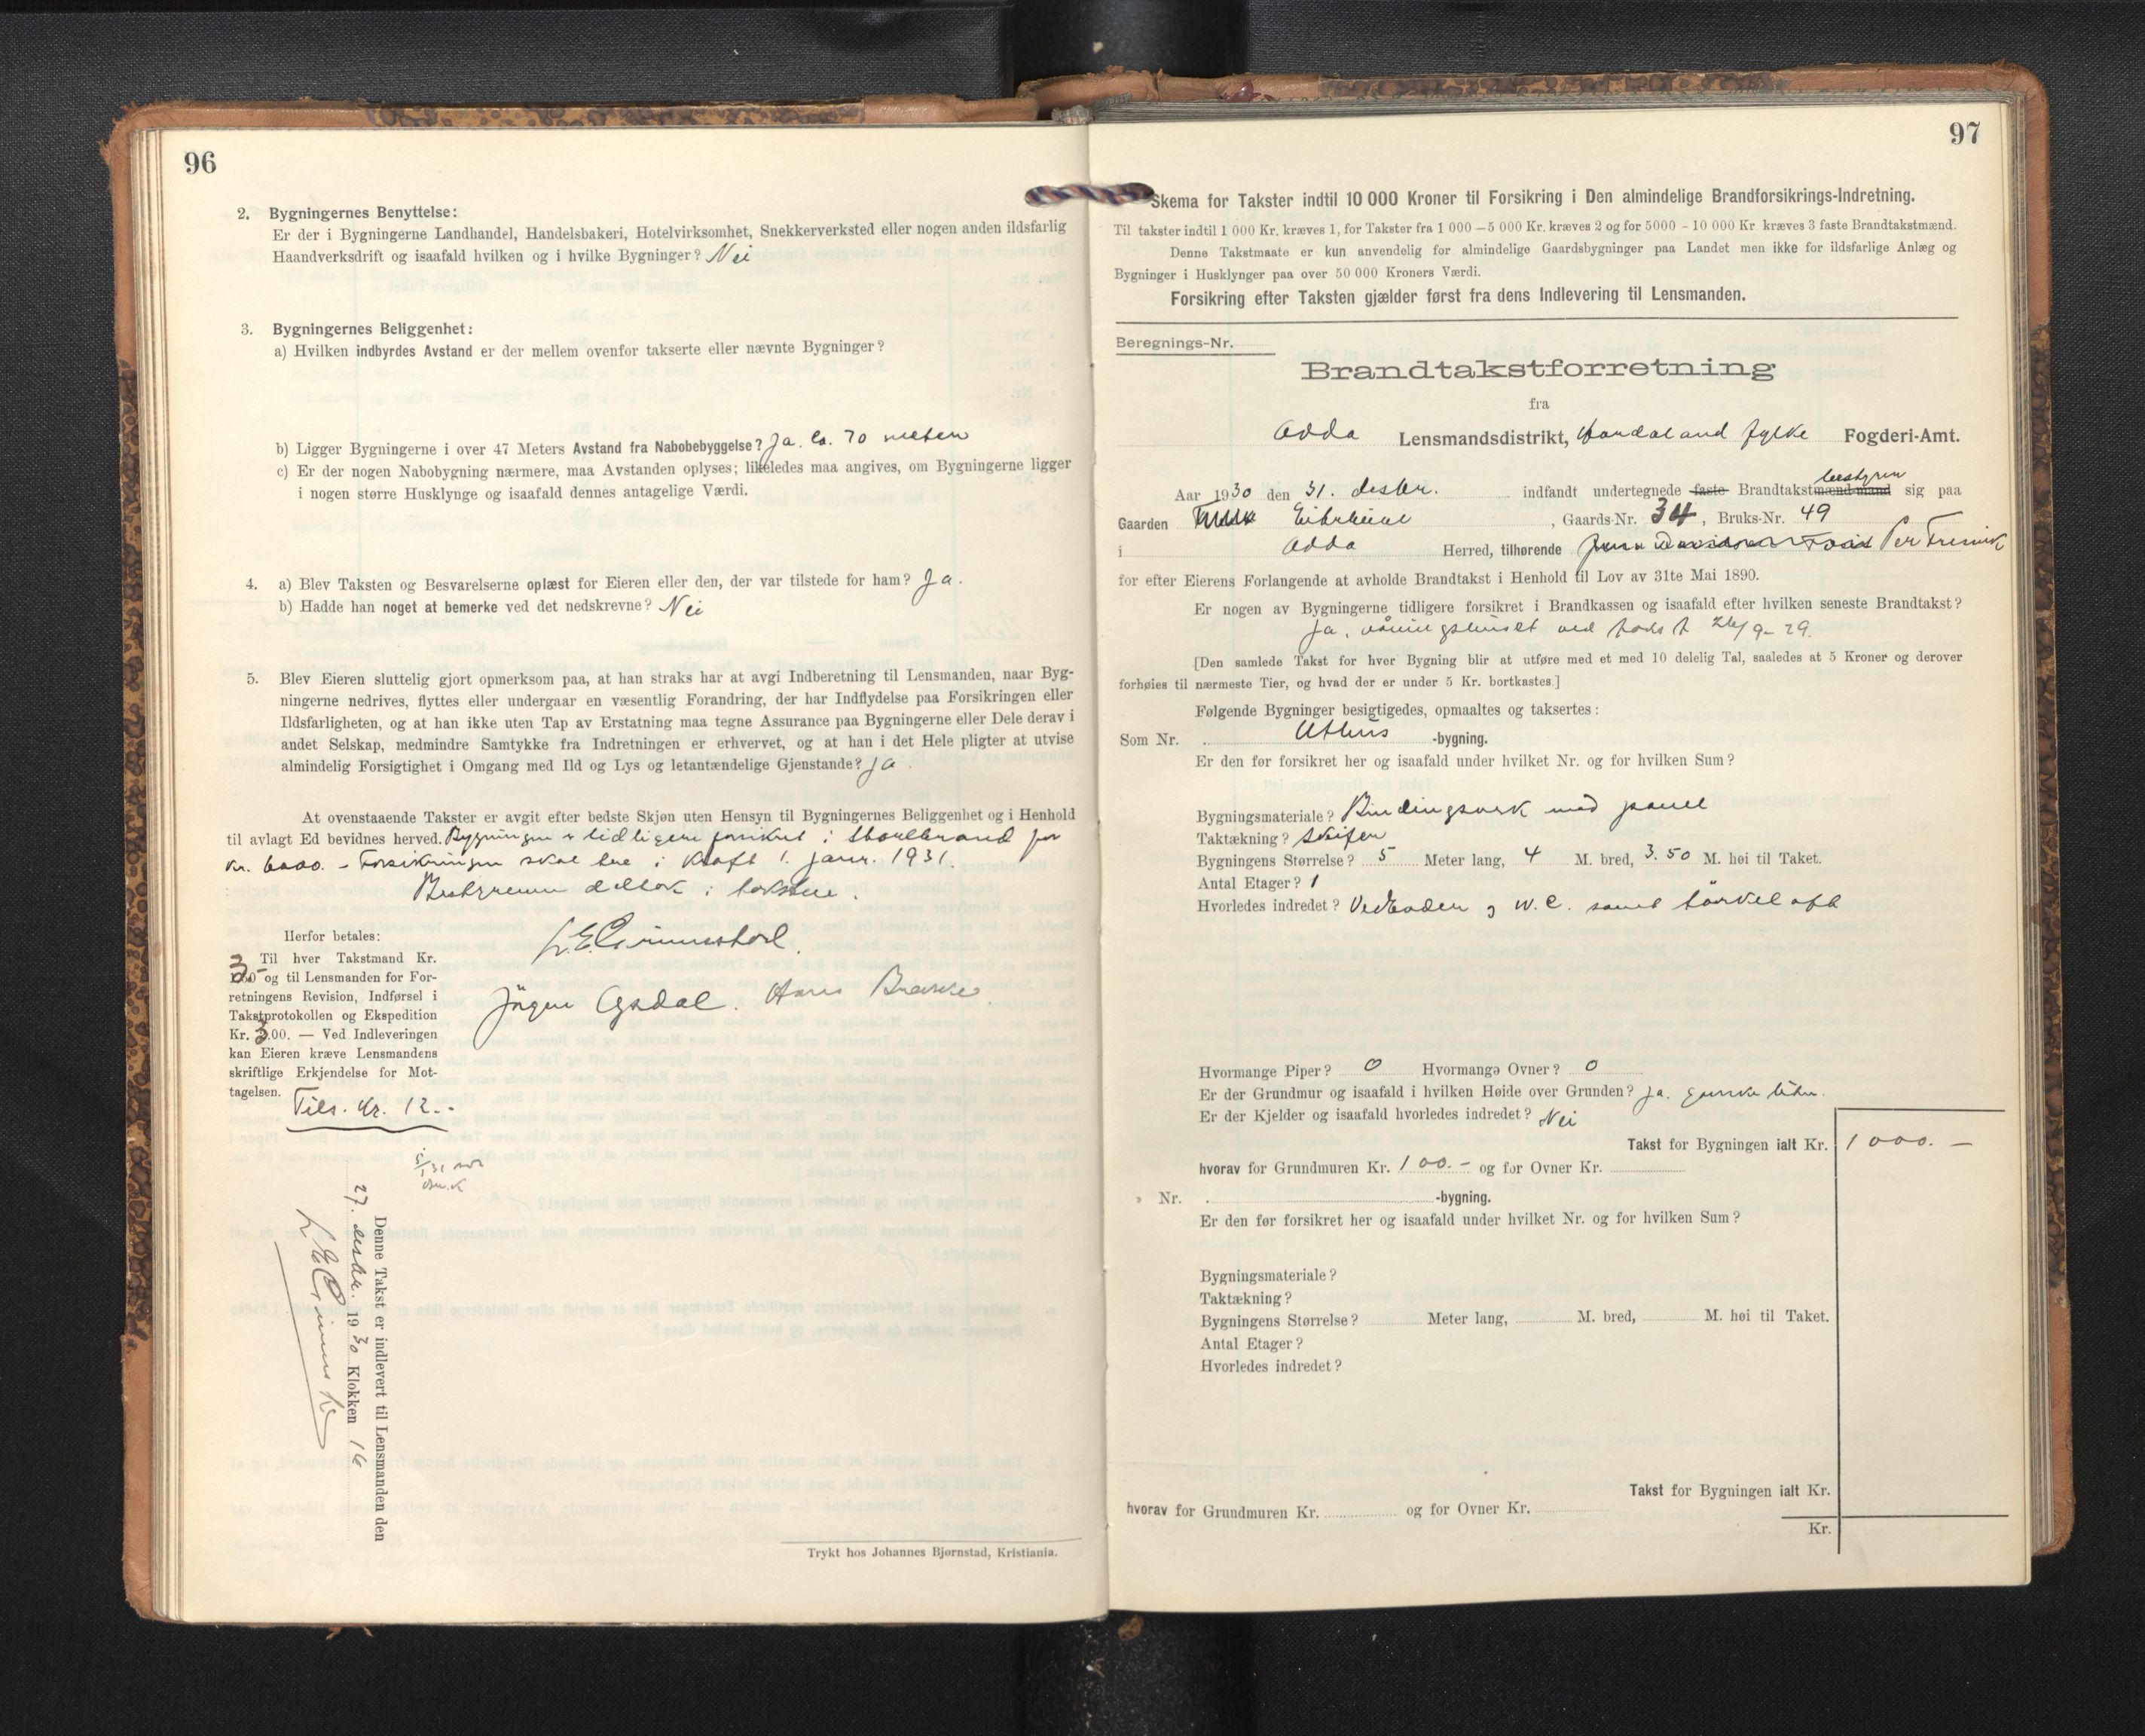 96
2. Bygningernes Benyttelse:
Er der i Bygningerne Landhandel, Handelsbakeri, Hotelvirksomhet, Snekkerverksted eller nogen anden ildsfarlig
Haandverksdrift og isaafald hvilken og i hvilke Bygninger? Nei
3. Bygningernes Beliggenhet:
a) Hvilken indbyrdes Avstand er der mellem ovenfor takserte eller nævnte Bygninger?
b) Ligger Bygningerne i over 47 Meters Avstand fra Nabobebyggelse? Ja. Ca. 70 meter
c) Er der nogen Nabobygning nærmere, maa Avstanden oplyses; likeledes maa angives, om Bygningerne ligger
i nogen større Husklynge og isaafald dennes antagelige Værdi.
4. a) Blev Taksten og Besvarelserne oplæst for Eieren eller den, der var tilstede for ham? Ja.
b) Hadde han noget at bemerke ved det nedskrevne? Nei
5. Blev Eieren sluttelig gjort opmerksom paa, at han straks har at avgi Indberetning til Lensmanden, naar Byg-
ningerne nedrives, flyttes eller undergaar en væsentlig Forandring, der har Indflydelse paa Forsikringen eller
Ildsfarligheten, og at han ikke uten Tap av Erstatning maa tegne Assurance paa Bygningerne eller Dele derav i
andet Selskap, medmindre Samtykke fra Indretningen er erhvervet, og at han i det Hele pligter at utvise
almindelig Forsigtighet i Omgang med Ild og Lys og letantændelige Gjenstande? Ja
At ovenstaaende Takster er avgit efter bedste Skjøn uten Hensyn til Bygningernes Beliggenhet og i Henhold
til avlagt Ed bevidnes herved. Bygningen er tidligere forsikret i Storebrand for
kr. 6000. - Forsikringen skal tre i kraft 1. janr. 1931.
Bestyreren deltok i taksten.
Herfor betales:
Til hver Takstmand Kr.
3.- og til Lensmanden for For-
retningens Revision, Indførsel i
Takstprotokollen og Ekspedition
Kr. 3.00. — Ved Indleveringen
kan Eieren kræve Lensmandens
skriftlige Erkjendelse for Mot-
tagelsen.
Jörgen Agdal. Hans
Tils. Kr. 12.-
Denne Takst er indlevert til Lensmanden den
27. desbr. 1930 Klokken 16
Trykt hos Johannes Bjørnstad, Kristiania.
97
Skema for Takster indtil 10 000 Kroner til Forsikring i Den almindelige Brandforsikrings-Indretning.
Til takster indtil 1 000 Kr. kræves 1, for Takster fra 1 000 — 5 000 Kr. kræves 2 og for 5000 - 10 000 Kr. kræves 3 faste Brandtakstmænd.
Denne Takstmaate er kun anvendelig for almindelige Gaardsbygninger paa Landet men ikke for ildsfarlige Anlæg og
Bygninger i Husklynger paa over 50 000 Kroners Værdi.
Forsikring efter Taksten gjælder først fra dens Indlevering til Lensmanden.
Beregnings-Nr.
Brandtakstforretning
fra
Odda Lensmandsdistrikt, Hordaland fylke Fogderi-Amt.
bestyrer
Aar 1930 den 31. desbr. indfandt undertegnede faste Brandtakstmænd mand sig paa
Gaarden Eitrheim, Gaards-Nr. 34, Bruks-Nr. 49
i Odda Herred, tilhørende Per
for efter Eierens Forlangende at avholde Brandtakst i Henhold til Lov av 31te Mai 1890.
Er nogen av Bygningerne tidligere forsikret i Brandkassen og isaafald efter hvilken seneste Brandtakst?
Ja, våningshuset ved takst 26/9-29.
[Den samlede Takst for hver Bygning blir at utføre med et med 10 delelig Tal, saaledes at 5 Kroner og derover
forhøies til nærmeste Tier, og hvad der er under 5 Kr. bortkastes.]
Følgende Bygninger besigtigedes, opmaaltes og taksertes:
Som Nr. Uthus -bygning.
Er den før forsikret her og isaafald under hvilket Nr. og for hvilken Sum?
Bygningsmateriale? Bindingsverk med panel
Taktækning? Skifer
Bygningens Størrelse? 5 Meter lang, 4 M. bred, 3.50 M. høi til Taket.
Antal Etager? 1
Hvorledes indredet? Vedboder og W.C. samt törkeloft
Hvormange Piper? 0 Hvormange Ovner? 0
Er der Grundmur og isaafald i hvilken Høide over Grunden? Ja, ganske liten.
Er der Kjelder og isaafald hvorledes indredet? Nei
Takst for Bygningen ialt Kr. 1000.—
hvorav for Grundmuren Kr. 100.- og for Ovner Kr.
» Nr. -bygning.
Er den før forsikret her og isaafald under hvilket Nr. og for hvilken Sum?
Bygningsmateriale?
Taktækning?
Bygningens Størrelse? Meter lang, M. bred, M. høi til Taket.
Antal Etager?
Hvorledes indredet?
Takst for Bygningen ialt Kr.
hvorav for Grundmuren Kr. og for Ovner Kr.
Kr.